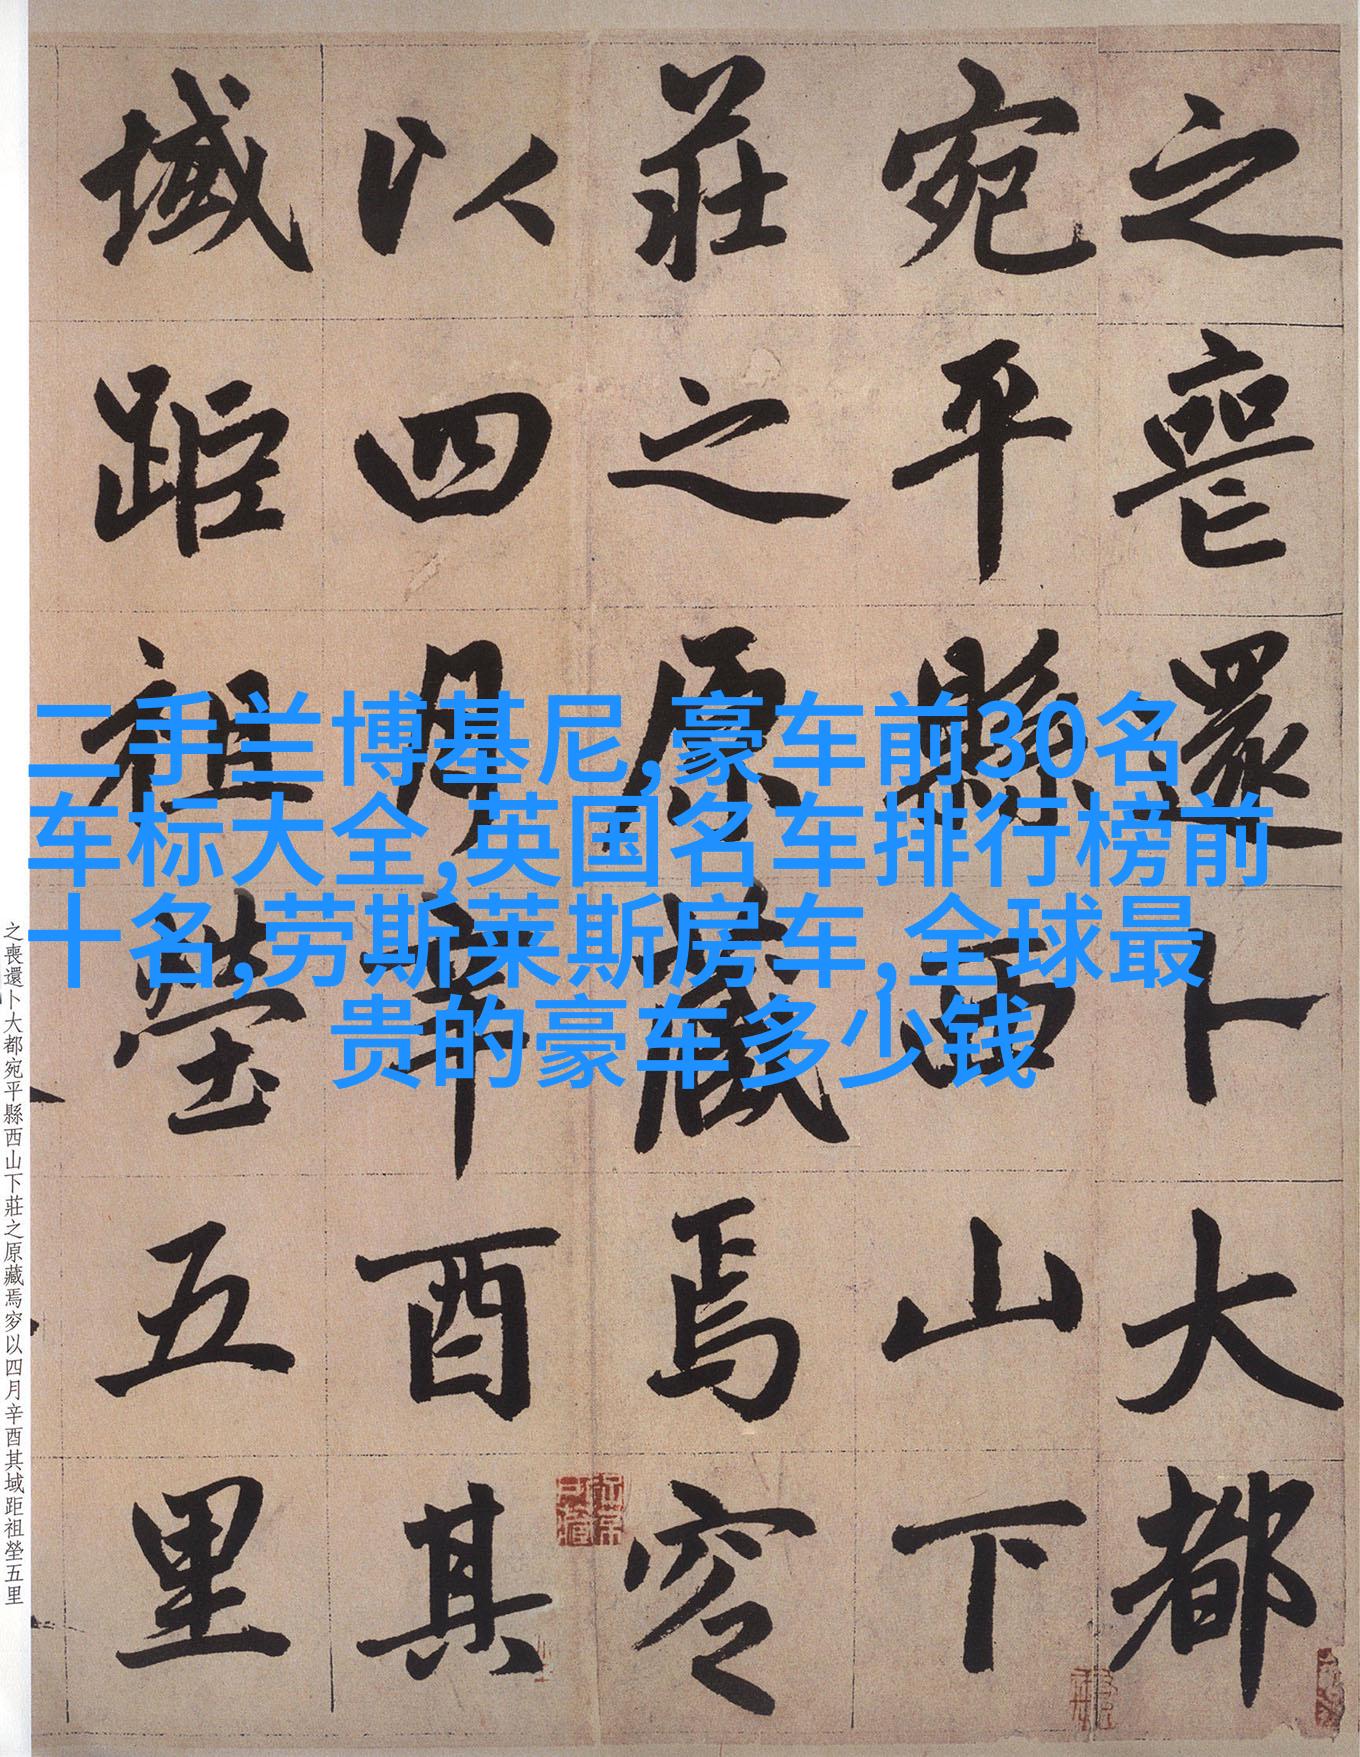 之喪還卜大都
宛平縣西山下
莊之原藏焉穸
以四月辛酉其
域距祖塋五里
二手兰博基尼,豪车前30名
车标大全,英国名车排行榜前
十名,劳斯莱斯房车,全球最
贵的豪车多少钱
之喪還卜大都宛平縣西山下莊之原藏焉穸以四月辛酉其域距祖塋五里